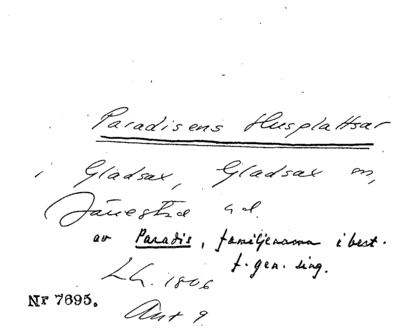 Paradisens Husplattsar
i Gladsax, Gladsax sn,
Järrestad hd.
av Paradis, familjenamn i best.
f. gen. sing.
Lh. 1806
Akt 9
Nr 7695.